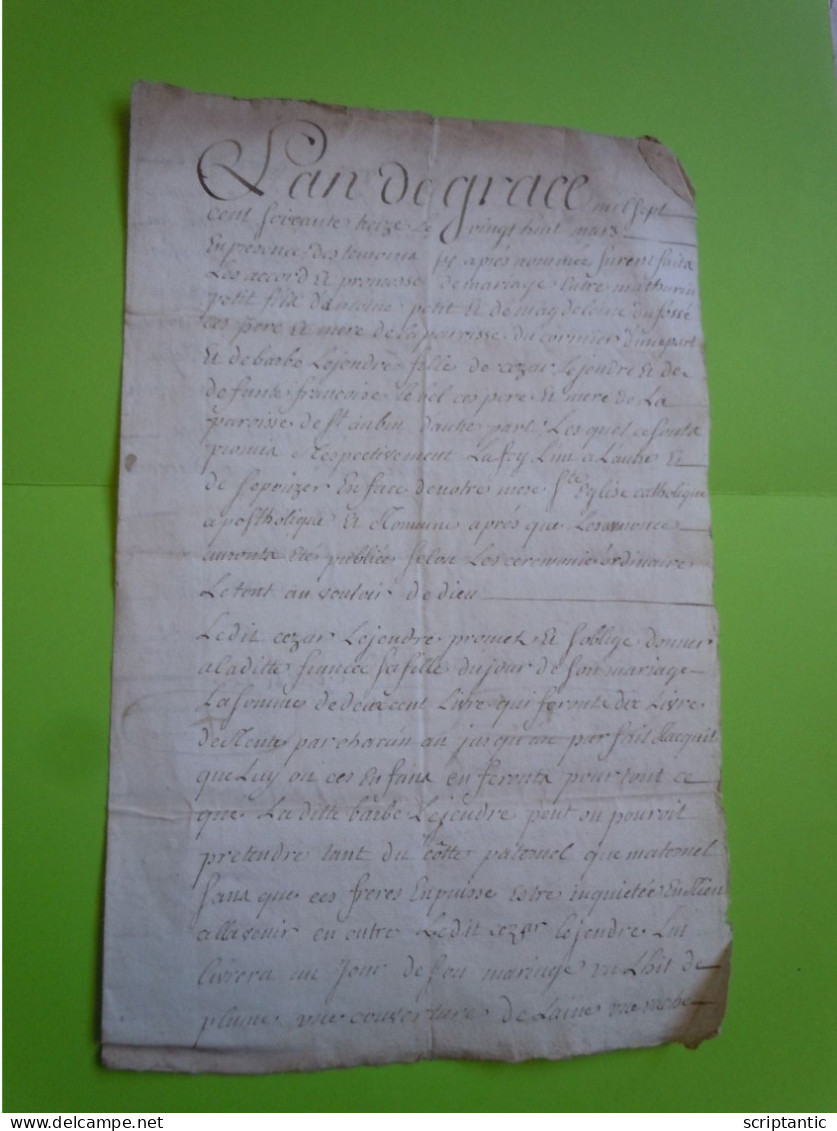 L'an de grace mil sept
cent soixante treize le vingt huit mars
En presence des temoins cy aprés nommée furent faits
Les accord Et promesse de mariage Entre mathurin
petit fils d'antoine petit Et de magdeleine du fossé
ces pere Et mere de la parroisse du cormier d'une part
Et de barbe Lejendre fille de cezar Lejendre Et de
defunte francoise Le bel ces pere Et mere de La
paroisse de St aubin d'autre part Les quel ce sonts
promis Respectivement La foy L'un a Lautre Et
de Sepouzer En face de notre mere Ste Eglise catholique
apostholique Et Romaine aprés que Les annonce
auronts Ete publiée selon Les ceremonie ordinaire
Le tout au vouloir de dieu
Ledit cezar Lejendre promet Et soblige donner
a laditte fiancée sa fille du jour de son mariage
La somme de deux cent Livre qui feronts dix Livre
de Rente par chacun an jusqu'au parfait Racquit
que Luy ou ces Enfans en feronts pour tout ce
que La ditte barbe Lejendre peut ou pouroit
pretendre tant du côtte paternel que maternel
sans que ces freres En puisse Estre inquietée En Rien
a llavenir en outre Ledit cezar lejendre Lui
livrera au Jour de son mariage un Lhit de
plume une couverture de Laine une